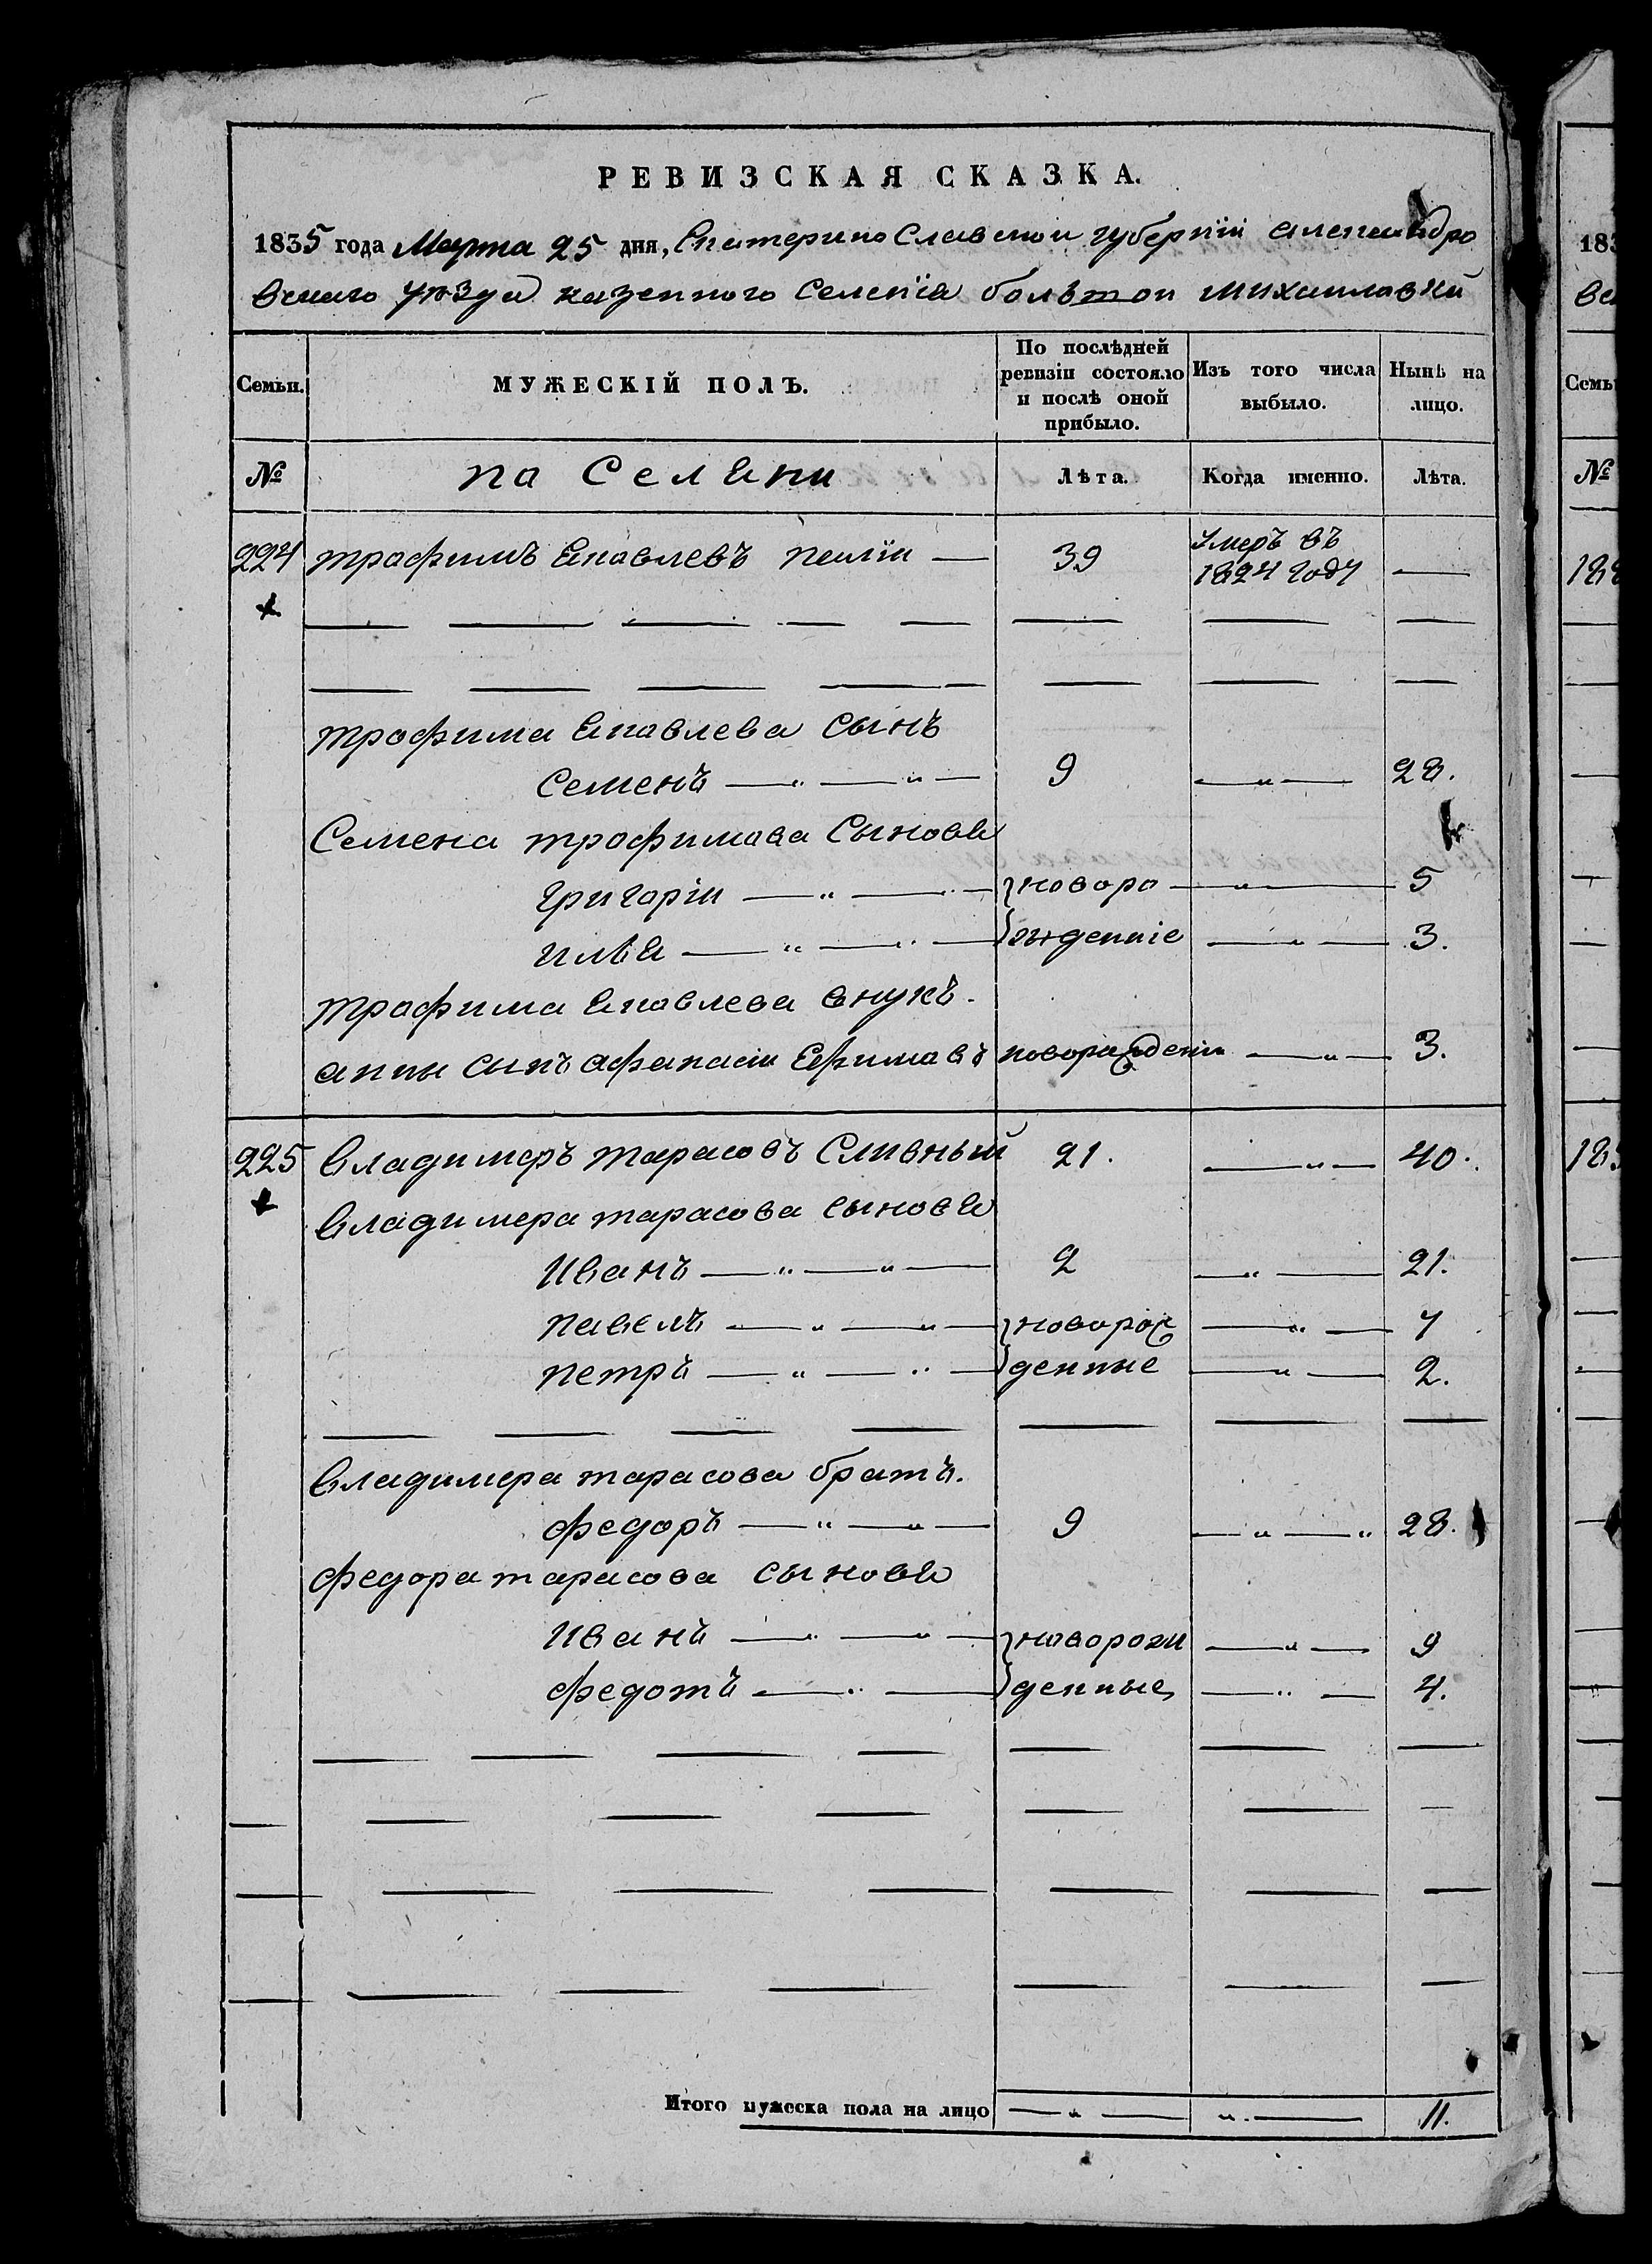 РЕВИЗСКАЯ СКАЗКА.
1835 года Марта 25 дня, Екатерино Славскои губерніи александро
вскаго уѣзда казенного Селенія большои михаиловки
Семьи. МУЖЕСКІЙ ПОЛЪ. По послѣдней ревизіи состояло и послѣ оной прибыло. Изъ того числа выбыло. Нынѣ на лицо.
№ па Селяни Лѣта. Когда именно. Лѣта.
224 трофимъ Яковлевъ 39 Умеръ въ 1824 году —
трофима Яковлева сынъ
Семенъ — „ — „ — 9 — „ — 28.
Семена трофимова Сыновя
Григоріи — „ — „ — новоро — „ — 5
илья — „ — „ — жденніе — „ — 3.
трофима Яковлева внукъ.
анны сынъ афанасіи Ефимовъ новорожденіи — „ — 3.
225 владимеръ тарасовъ Сливный 21. — „ — 40.
владимера тарасова сыновя
Иванъ — „ — „ — 2 — „ — 21.
павелъ — „ — „ — новорож — „ — 7
петръ — „ — „ — денные — „ — 2.
владимера тарасова братъ.
федоръ — „ — „ — 9 — „ — „ 28.
федора тарасова сыновя
Иванъ — „ — „ — новорож — „ — 9
федотъ — „ — денные — „ — 4.
Итого мужеска пола на лицо — „ — „ — 11.
183
вс
Семь
№